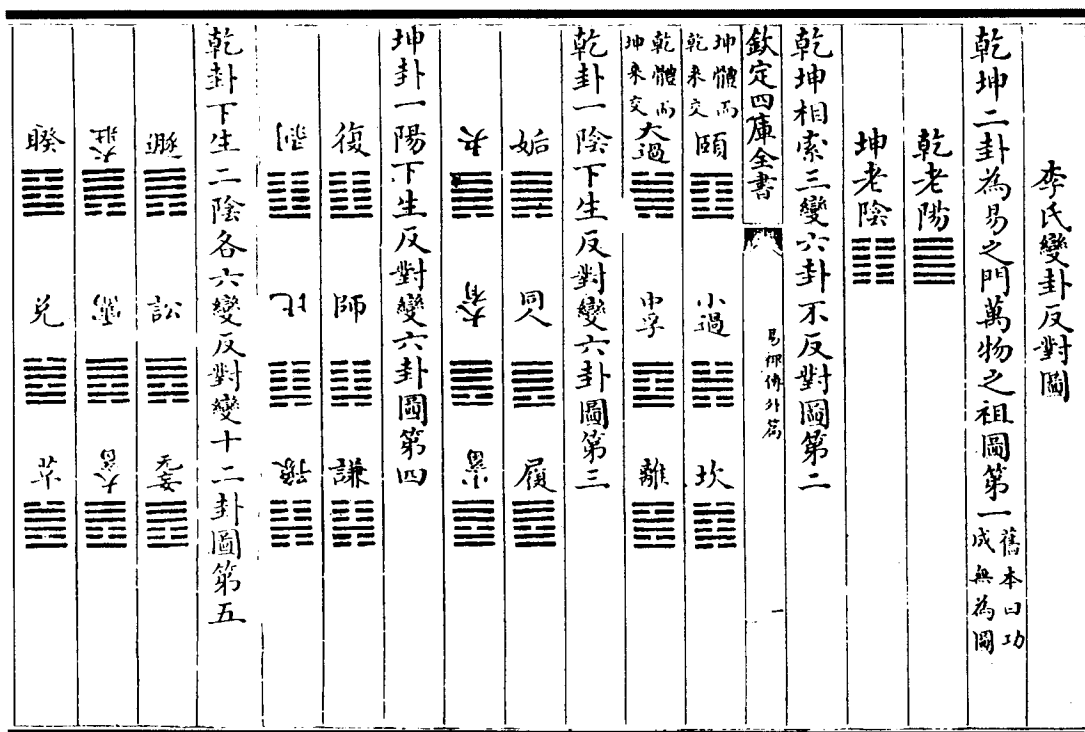 李氏變卦反對圖
乾坤二卦為易之門萬物之祖圖第一 舊本曰功成無為圖
乾老陽
坤老陰
乾坤相索三變六卦不反對圖第二
欽定四庫全書
易俯傳外篇
一
坤體而乾來交 頤 小過 坎
乾體而坤來交 大過 中孚 離
乾卦一陰下生反對變六卦圖第三
姤 同人 履
夬 大有 小畜
坤卦一陽下生反對變六卦圖第四
復 師 謙
剥 比 豫
乾卦下生二陰各六變反對變十二卦圖第五
遯 訟 无妄
大壯 需 大畜
睽 兌